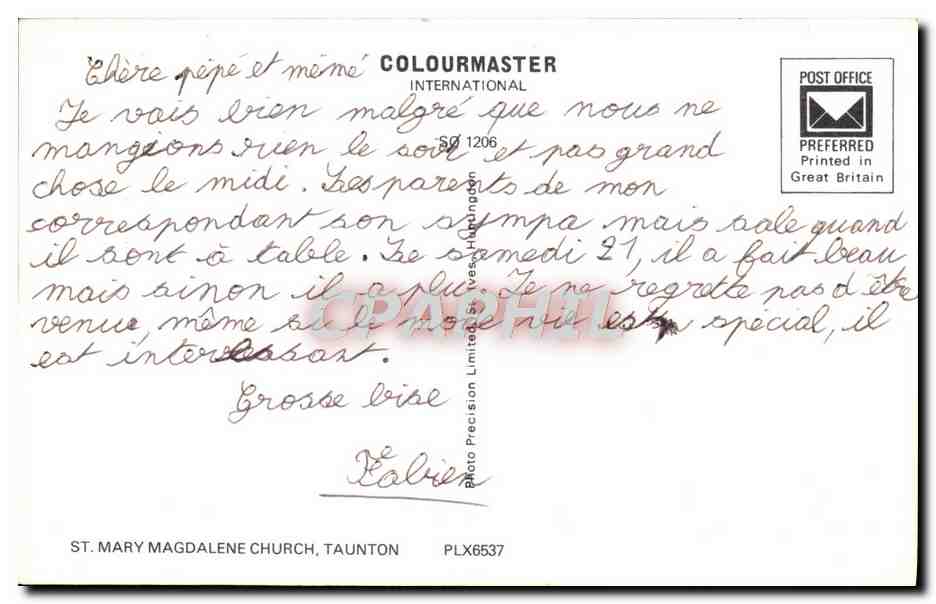 Chère pépé et mémé
COLOURMASTER
INTERNATIONAL
POST OFFICE
PREFERRED
Printed in
Great Britain
Je vais bien malgré que nous ne
SØ 1206
mangions rien le soir et pas grand
chose le midi. Les parents de mon
correspondant son sympa mais sale quand
il sont à table. Le samedi 21, il a fait beau
mais sinon il a plu. Je ne regrette pas d être
venu, même si le mode vie est spécial, il
est intéressant.
Grosse bise
Fabien
Photo Precision Limited, St. Ives, Huntingdon
CPAPHIL
ST. MARY MAGDALENE CHURCH, TAUNTON PLX6537